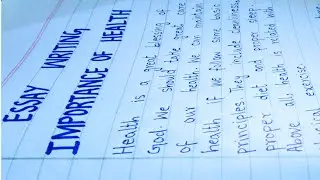 ESSAY WRITING
IMPORTANCE OF HEALTH
Health is a great blessing of
God. We should take great care
of our health. We can maintain
health if we know some basic
principles. They include cleanliness,
proper diet and proper sleep.
Above all, health is related with
exercise